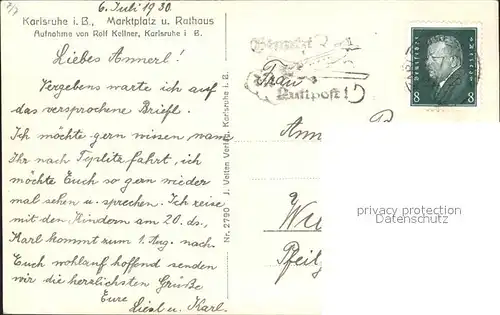 6. Juli 1930.
Karlsruhe i. B., Marktplatz u. Rathaus
Aufnahme von Rolf Kellner, Karlsruhe i. B.
Liebes Annerl!
Vergebens warte ich auf
das versprochene Briefl.
Ich möchte gern wissen, wann
Ihr nach Teplitz fahrt, ich
möchte Euch so gern wieder
mal sehen u. sprechen. Ich reise
mit den Kindern am 20. ds.,
Karl kommt zum 1. Aug. nach.
Euch wohlauf hoffend senden
wir die herzlichsten Grüße
Eure
Liesl u. Karl.
Nr. 2790 J. Velten Verlag, Karlsruhe i. B.
Luftpost!
8 8
Frau
Ann
Pfeilg
privacy protection
Datenschutz